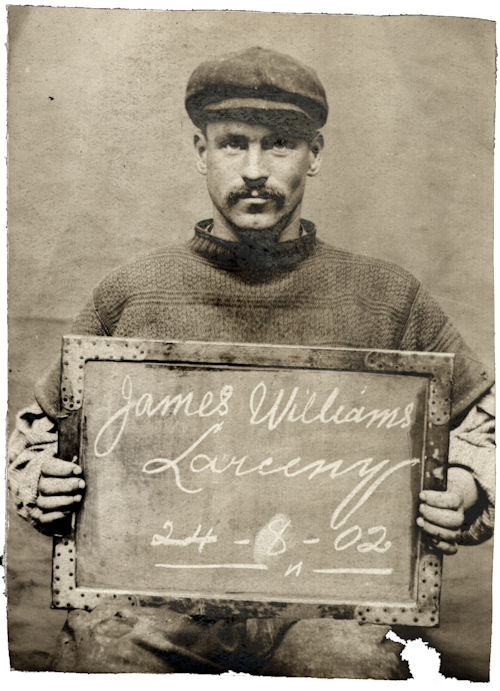 James Williams
Larceny
24-8-02
"